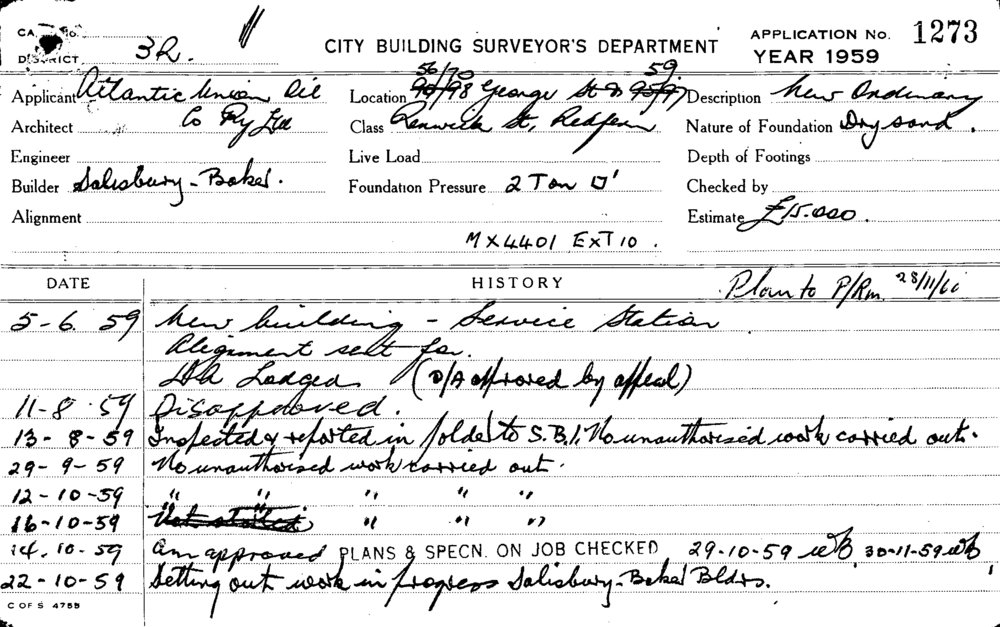 CA No.
DISTRICT 3R.
CITY BUILDING SURVEYOR'S DEPARTMENT
APPLICATION No. 1273
YEAR 1959
Applicant Atlantic Union Oil
Co Pty Ltd
Architect
Engineer
Builder Salisbury - Baker.
Alignment
56/70 59.
Location 90/98 George St & 95/97
Class Renwick St, Redfern
Live Load
Foundation Pressure 2 Ton □'
MX4401 EXT 10.
Description New Ordinary
Nature of Foundation Dry sand.
Depth of Footings
Checked by
Estimate £15.000.
DATE HISTORY Plan to P/Rm. 28/11/60
5-6.59 New building - Service Station
Alignment sent for.
DA Lodged (D/A approved by appeal)
11-8-59 Disapproved.
13-8-59 Inspected & reported in folder to S.B.I. No unauthorised work carried out.
29-9-59 No unauthorised work carried out.
12-10-59 " " " " "
16-10-59 Not started " " "
14.10-59 Am approved PLANS & SPECN. ON JOB CHECKED 29-10-59 WB 30-11-59 WB
22-10-59 Setting out work in progress Salisbury-Baker Bldrs.
C OF S 4755